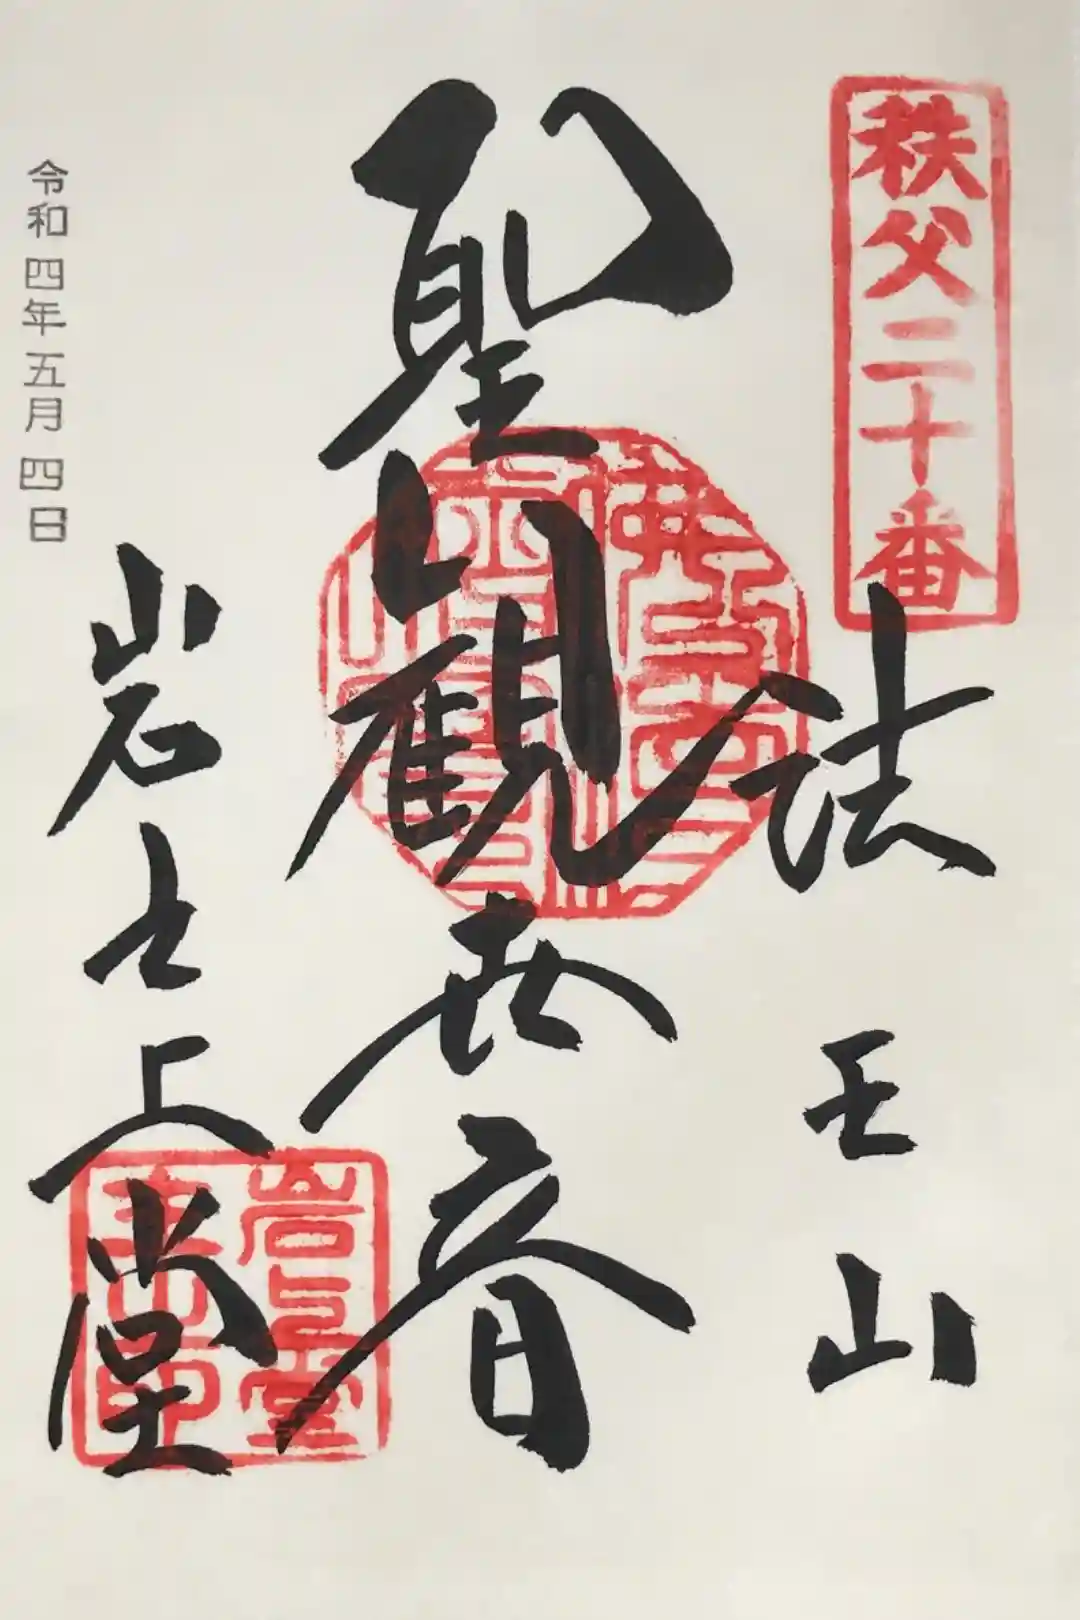 秩父二十番
法王山
聖観世音
岩之上堂
令和四年五月四日
岩上堂